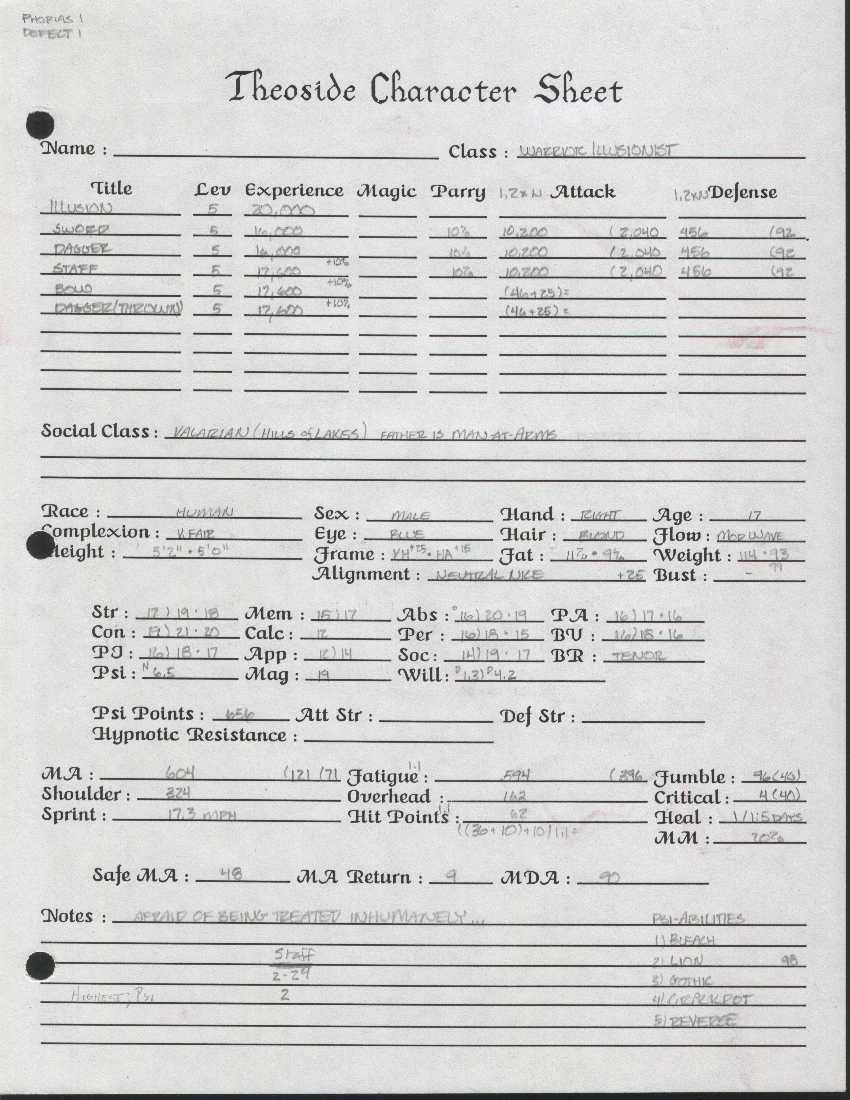 PHOBIAS 1
DEFECT 1
Theoside Character Sheet
Name : Class : WARRIOR ILLUSIONIST
Title Lev Experience Magic Parry 1.2xN Attack 1.2xN Defense
ILLUSION 5 20,000
SWORD 5 16,000 10% 10,200 (2,040 456 (92
DAGGER 5 16,000 10% 10,200 (2,040 456 (92
STAFF 5 17,600 +10% 10% 10,200 (2,040 456 (92
BOW 5 17,600 +10% (46+25)=
DAGGER (THROWN) 5 17,600 +10% (46+25)=
Social Class : VALARIAN (HILLS of LAKES) FATHER IS MAN-AT-ARMS
Race : HUMAN Sex : MALE Hand : RIGHT Age : 17
Complexion : V. FAIR Eye : BLUE Hair : BLOND Flow : MOD WAVE
Height : 5'2" • 5'0" Frame : VH+25 • HA+15 Fat : 11% • 9% Weight : 114 • 93
99
Alignment : NEUTRAL NICE +25 Bust : -
Str : 17) 19 • 18 Mem : 15) 17 Abs : 16) 20 • 19 PA : 16) 17 • 16
Con : 19) 21 • 20 Calc : 12 Per : 16) 18 • 15 BV : 16) 18 • 16
PJ : 16) 18 • 17 App : 12) 14 Soc : 14) 19 • 17 BR : TENOR
Psi : N 6.5 Mag : 19 Will : P 1.3) P 4.2
Psi Points : 656 Att Str : Def Str :
Hypnotic Resistance :
MA : 604 (121 /71 Fatigue : 1.1 594 (396 Fumble : 96(40)
Shoulder : 324 Overhead : 162 Critical : 4(40)
Sprint : 17.3 MPH Hit Points : 1.1 62 Heal : 1/1.5 DAYS
((36+10)+10/1.1)= MM : 20%
Safe MA : 48 MA Return : 9 MDA : 90
Notes : AFRAID OF BEING TREATED INHUMANELY... PSI-ABILITIES
1) BLEACH
Staff 2) LION 98
2-29 3) GOTHIC
HIGHEST; PSI 2 4) CRACKPOT
5) REVERSE